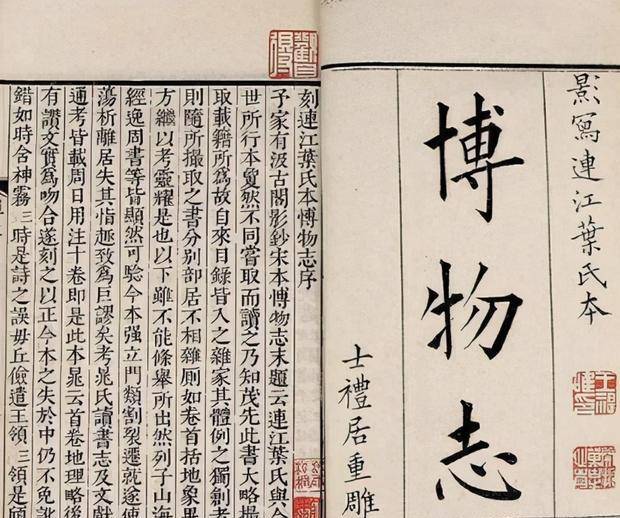 影寫連江葉氏本
博物志
士禮居重雕
刻連江葉氏本博物志序
予家有汲古閣影鈔宋本博物志末題云連江葉氏與今
世所行本夐然不同嘗取而讀之乃知茂先此書大略撮
取載籍所爲故自來目錄皆入之雜家其體例之獨創者
則隨所撮取之書分別部居不相雜厠如卷首括地象畢
方繼以考靈耀是也以下雖不能條舉所出然列子山海
經逸周書等皆顯然可驗今本强立門類割裂遷就遂使
蕩析離居失其指趣致爲巨謬矣考晁氏讀書志及文獻
通考皆載周日用注十卷即是此本晁云首卷地理略後
有讚文實爲吻合遂刻之以正今本之失於中仍不免訛
錯如時含神霧三時是詩之誤毋丘儉遣王領三領是頎